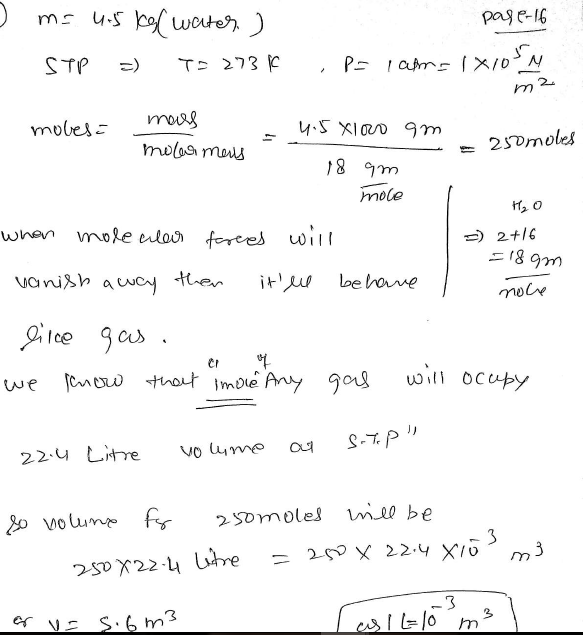 m = 4.5 kg (water)
page-16
STP => T = 273 K , P = 1 atm = 1 X 10^5 N/m^2
moles = mass / molar mass = 4.5 X 1000 gm / 18 gm/mole = 250 moles
H2O
=> 2+16
= 18 gm/mole
when molecular forces will
vanish away then it'll behave
like gas.
we know that "1 mole of Any gas will occupy
22.4 Litre volume at S.T.P"
So volume for 250 moles will be
250 X 22.4 litre = 250 X 22.4 X 10^-3 m^3
or V = 5.6 m^3
as 1 L = 10^-3 m^3